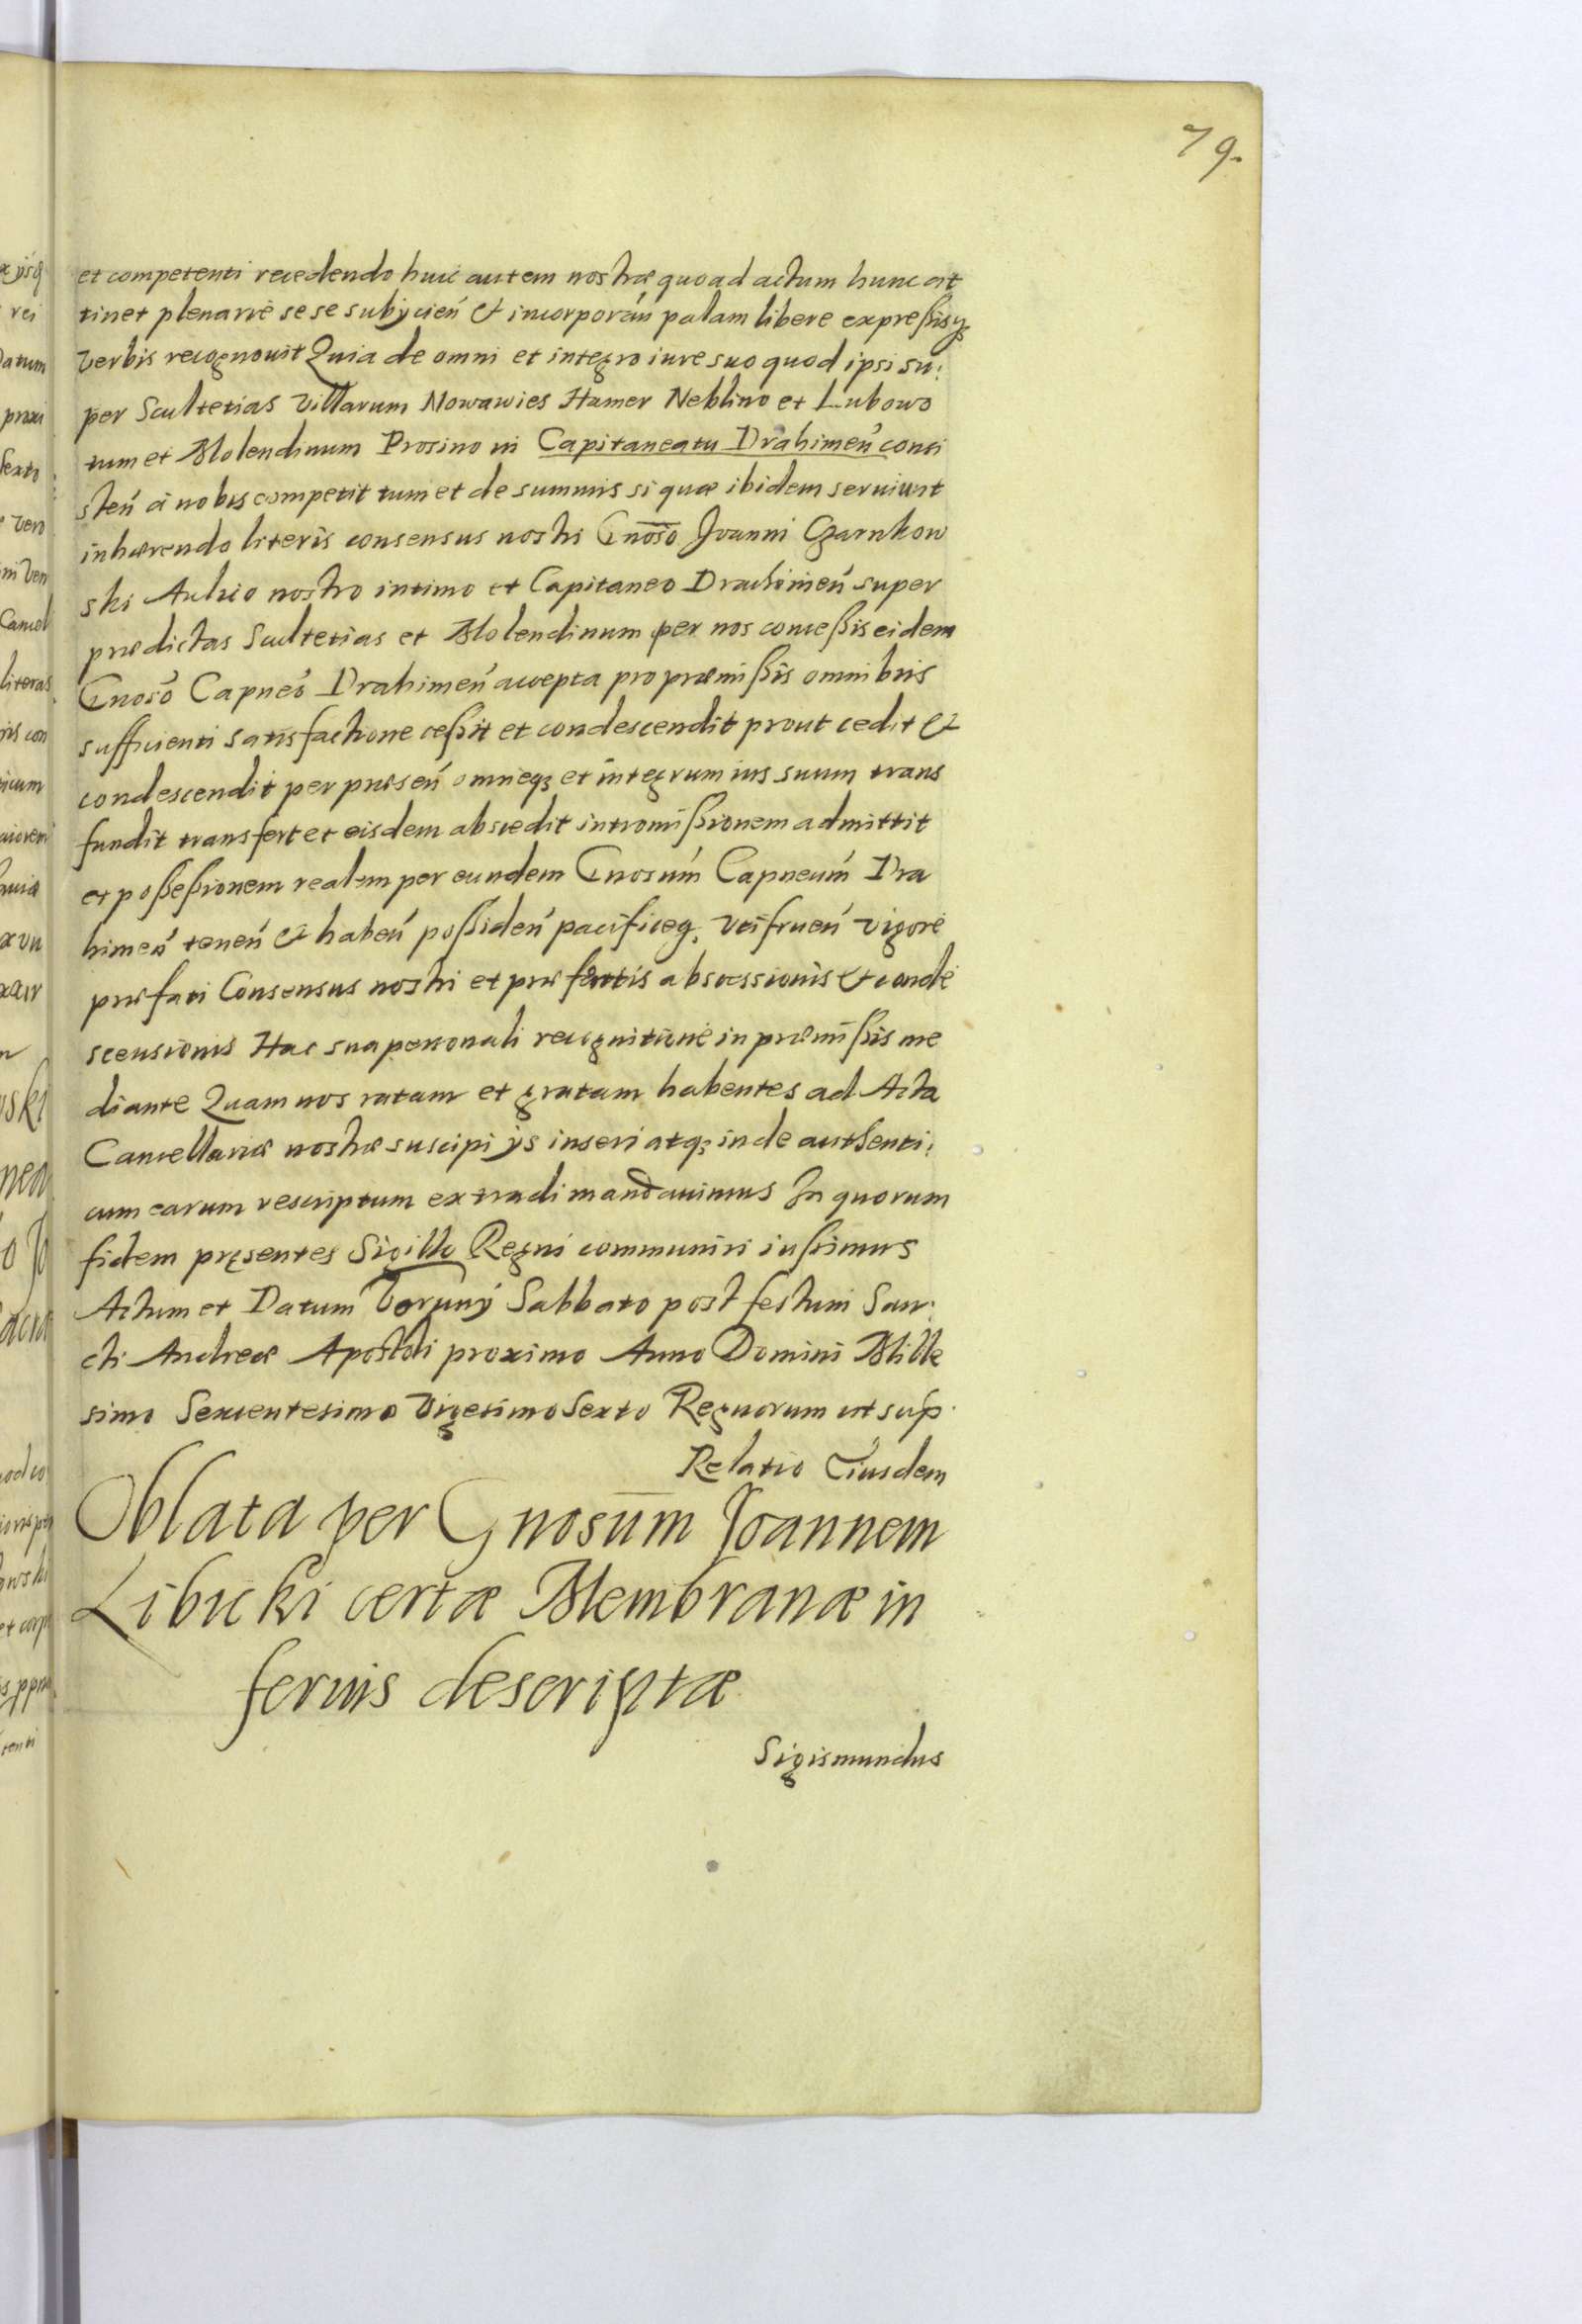 79.
et competenti recedendo huic autem nostræ quoad actum hunc at
tinet plenarie sese subijcień & incorporań palam libere expreßisq3
verbis recognouit Quia de omni et integro iure suo quod ipsi su:
per Scultetias villarum Nowawies Hamer Neblino et Lubowo
tum et Molendinum Prosino in Capitaneatu Drahimeń consi
steń a nobis competit tum et de summis si quæ ibidem seruiunt
inhærendo literis consensus nostri Gnoso Joanni Czarnkow
ski Aulico nostro intimo et Capitaneo Drachimeń super
prædictas Scultetias et Molendinum per nos conceßis eidem
Gnoso Capneo Drahimeń accepta pro præmißis omnibus
sufficienti satisfactione ceßit et condescendit prout cedit &
condescendit per præseń omneq3 et integrum ius suum trans
fundit transfert et eisdem abscedit intromißionem admittit
et poßeßionem realem per eundem Gnosum Capneum Dra
himeń teneń & habeń poßideń pacificeq3 vtifrueń vigore
præfati Consensus nostri et præsentis abscessionis & conde
scensionis Hac sua personali recognitione in præmißis me
diante Quam nos ratam et gratam habentes ad Acta
Cancellariæ nostræ suscipi ijs inseri atq3 inde authenti:
cum earum rescriptum extradi mandauimus In quorum
fidem pręsentes Sigillo Regni communiri iußimus
Actum et Datum Toruny Sabbato post festum San:
cti Andreæ Apostoli proximo Anno Domini Mille
simo Sexcentesimo Vigesimo Sexto Regnorum ut sup.
Relatio Eiusdem
Oblata per Gnosum Joannem
Libicki certæ Membranæ in
ferius descriptæ
Sigismundus